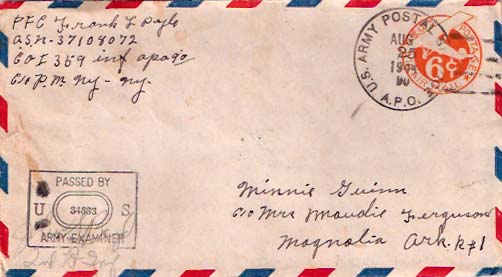 PFC Frank L Doyle
ASN-37108072
CO I 359 inf apo 90
C/o P.M. Ny - Ny.
U.S. ARMY POSTAL
AUG
25
1944
90
A.P.O.
6¢
PASSED BY
U 34883 S
ARMY EXAMINER
Minnie Guinn
C/o Mrs Maudie Ferguson
Magnolia Ark. R#1